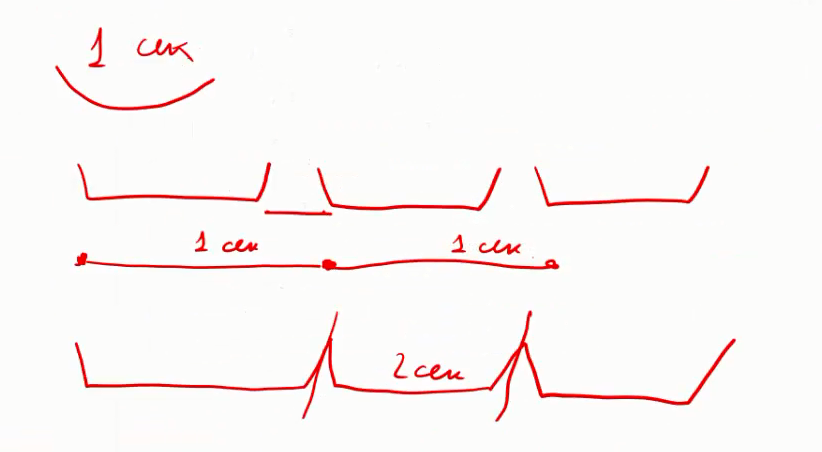 1 сек
1 сек 1 сек
2 сек